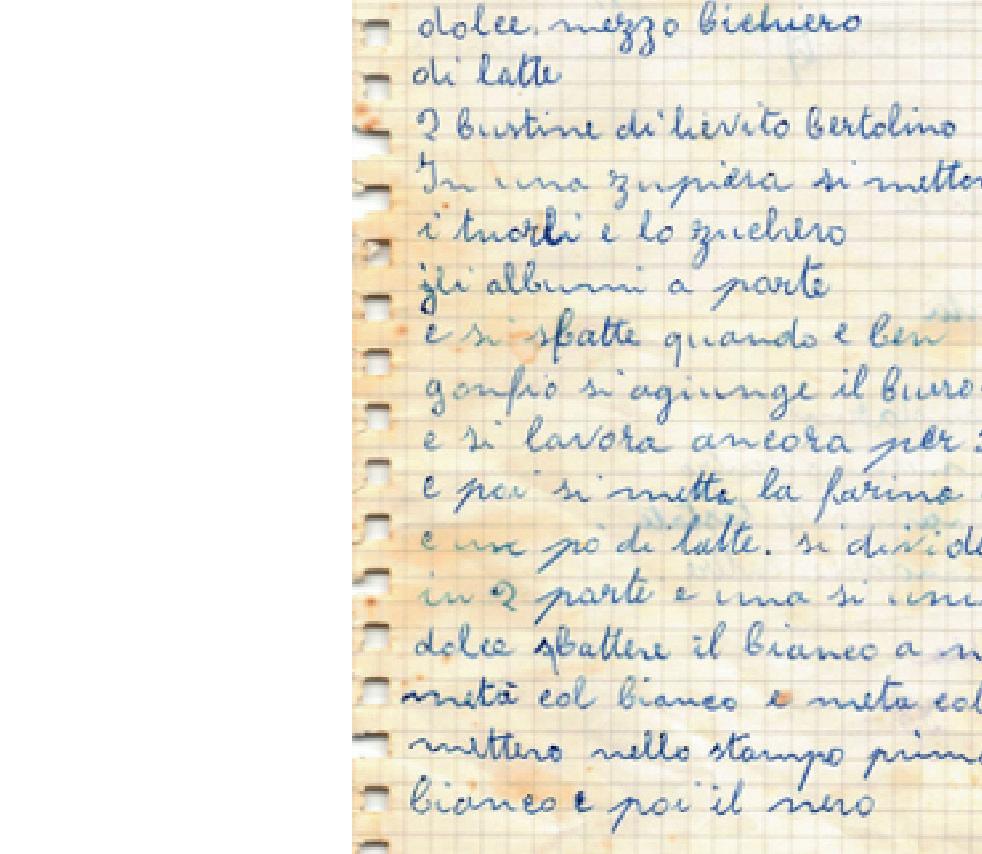 dolce. mezzo bichiero
di latte
2 bustine di lievito Bertolino
In una zupiera si metton
i tuorli e lo zuchero
gli albumi a parte
e si sbatte quando e ben
gonfio si agiunge il burro
e si lavora ancora per
e poi si mette la farina
e un pò di latte. si divide
in 2 parte e una si uni
dolce sbattere il bianco a n
metà col bianco e meta col
mettero nello stampo prim
bianco e poi il nero